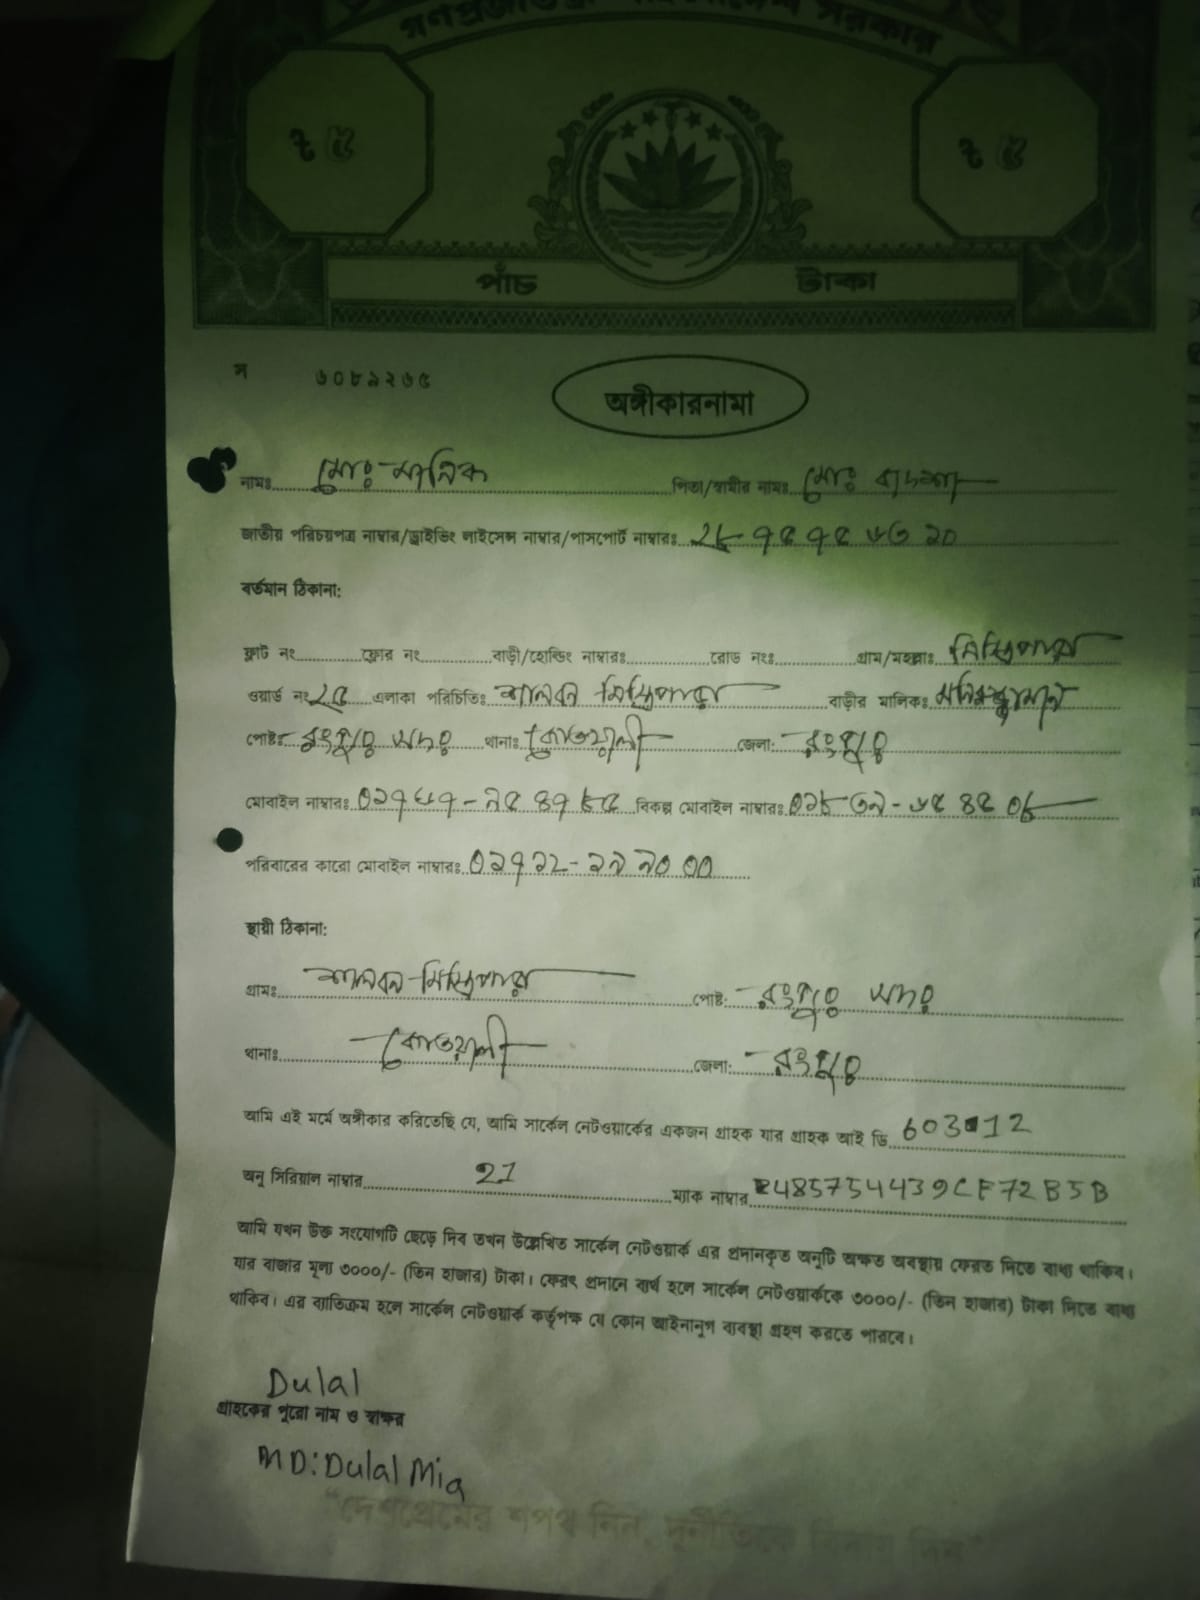 গণপ্রজাতন্ত্রী বাংলাদেশ সরকার
৳ ৫ ৳ ৫
পাঁচ টাকা
স ৬০৮৯২৬৫
অঙ্গীকারনামা
নামঃ মোঃ মানিক পিতা/স্বামীর নামঃ মোঃ বাদশা
জাতীয় পরিচয়পত্র নাম্বার/ড্রাইভিং লাইসেন্স নাম্বার/পাসপোর্ট নাম্বারঃ ২৮৭৫৭৫৮৩১০
বর্তমান ঠিকানা:
ফ্লাট নং ফ্লোর নং বাড়ী/হোল্ডিং নাম্বারঃ রোড নংঃ গ্রাম/মহল্লাঃ মিস্ত্রিপাড়া
ওয়ার্ড নং ২৫ এলাকা পরিচিতিঃ শালবন মিস্ত্রিপাড়া বাড়ীর মালিকঃ
পোষ্টঃ রংপুর সদর থানাঃ কোতয়ালী জেলা: রংপুর
মোবাইল নাম্বারঃ বিকল্প মোবাইল নাম্বারঃ
পরিবারের কারো মোবাইল নাম্বারঃ ০১৭১২-১৯৯০০০
স্থায়ী ঠিকানা:
গ্রামঃ শালবন মিস্ত্রিপাড়া পোষ্ট: রংপুর সদর
থানাঃ কোতয়ালী জেলা: রংপুর
আমি এই মর্মে অঙ্গীকার করিতেছি যে, আমি সার্কেল নেটওয়ার্কের একজন গ্রাহক যার গ্রাহক আই ডি 603012
অনু সিরিয়াল নাম্বার 21 ম্যাক নাম্বার 2485754439CF72B5B
আমি যখন উক্ত সংযোগটি ছেড়ে দিব তখন উল্লেখিত সার্কেল নেটওয়ার্ক এর প্রদানকৃত অনুটি অক্ষত অবস্থায় ফেরত দিতে বাধ্য থাকিব।
যার বাজার মূল্য ৩০০০/- (তিন হাজার) টাকা। ফেরৎ প্রদানে ব্যর্থ হলে সার্কেল নেটওয়ার্ককে ৩০০০/- (তিন হাজার) টাকা দিতে বাধ্য
থাকিব। এর ব্যাতিক্রম হলে সার্কেল নেটওয়ার্ক কর্তৃপক্ষ যে কোন আইনানুগ ব্যবস্থা গ্রহণ করতে পারবে।
Dulal
গ্রাহকের পুরো নাম ও স্বাক্ষর
MD:Dulal Mia
"দেশপ্রেমের শপথ নিন, দুর্নীতিকে বিদায় দিন"